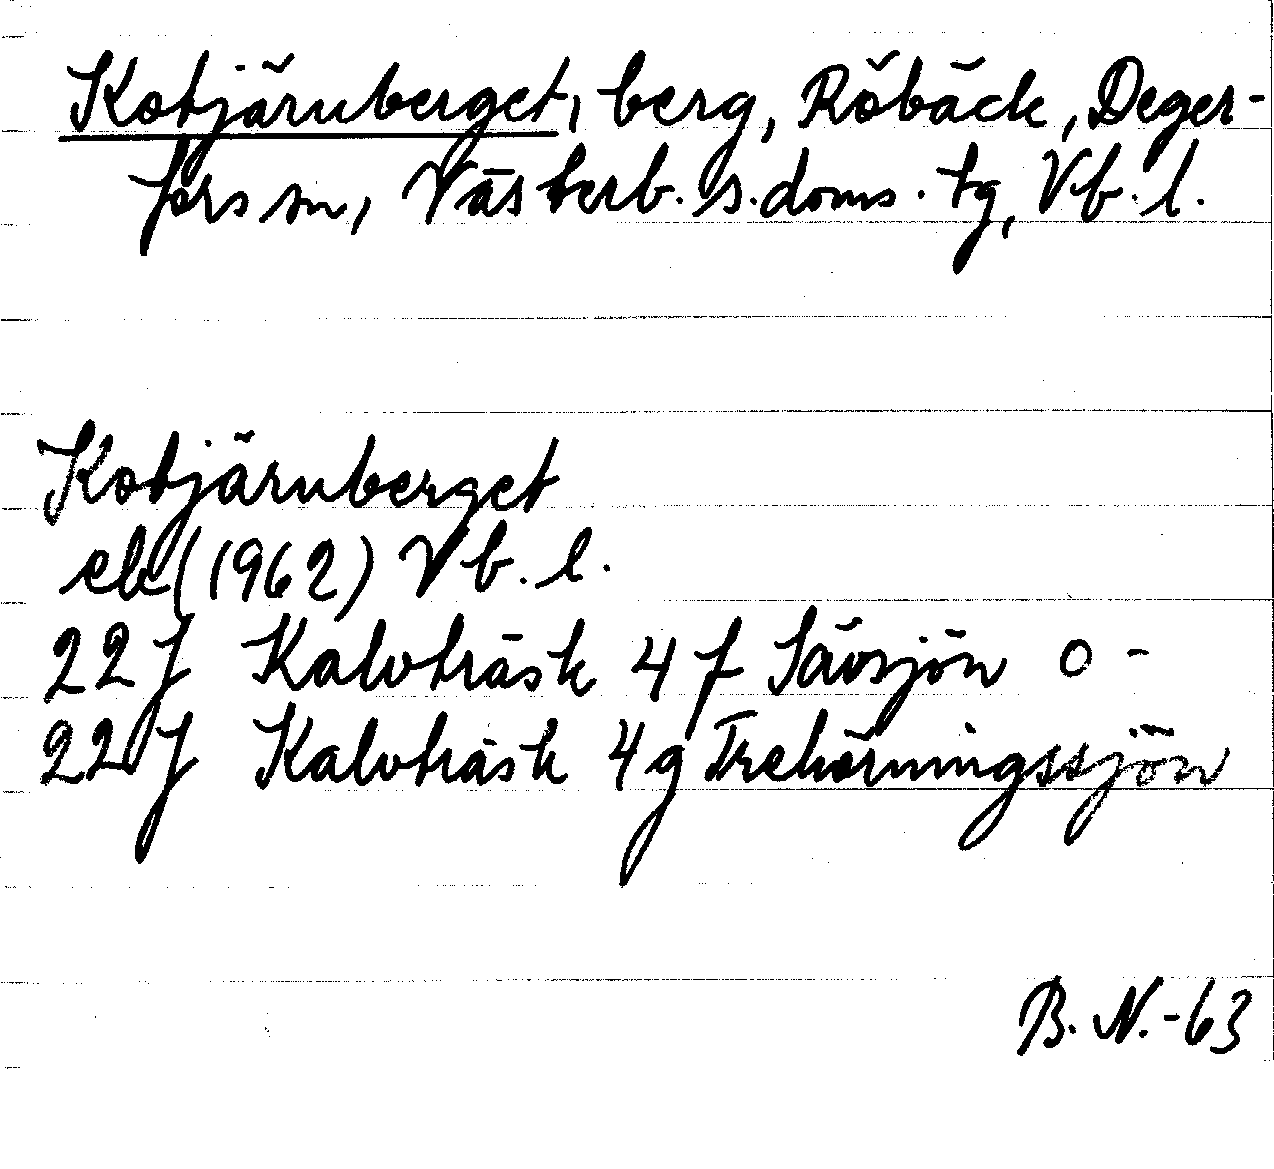 Kotjärnberget, berg, Röbäck, Deger-
fors sn, Västerb. s. doms. tg, Vb. l.
Kotjärnberget
ek (1962) Vb. l.
22 J Kalvträsk 4 f Sävsjön o -
22 J Kalvträsk 4 g Trehörningssjön
B. N. -63